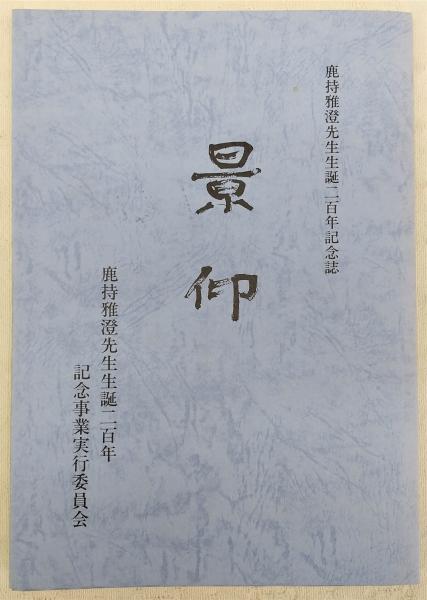 鹿持雅澄先生生誕二百年記念誌
景仰
鹿持雅澄先生生誕二百年
記念事業実行委員会